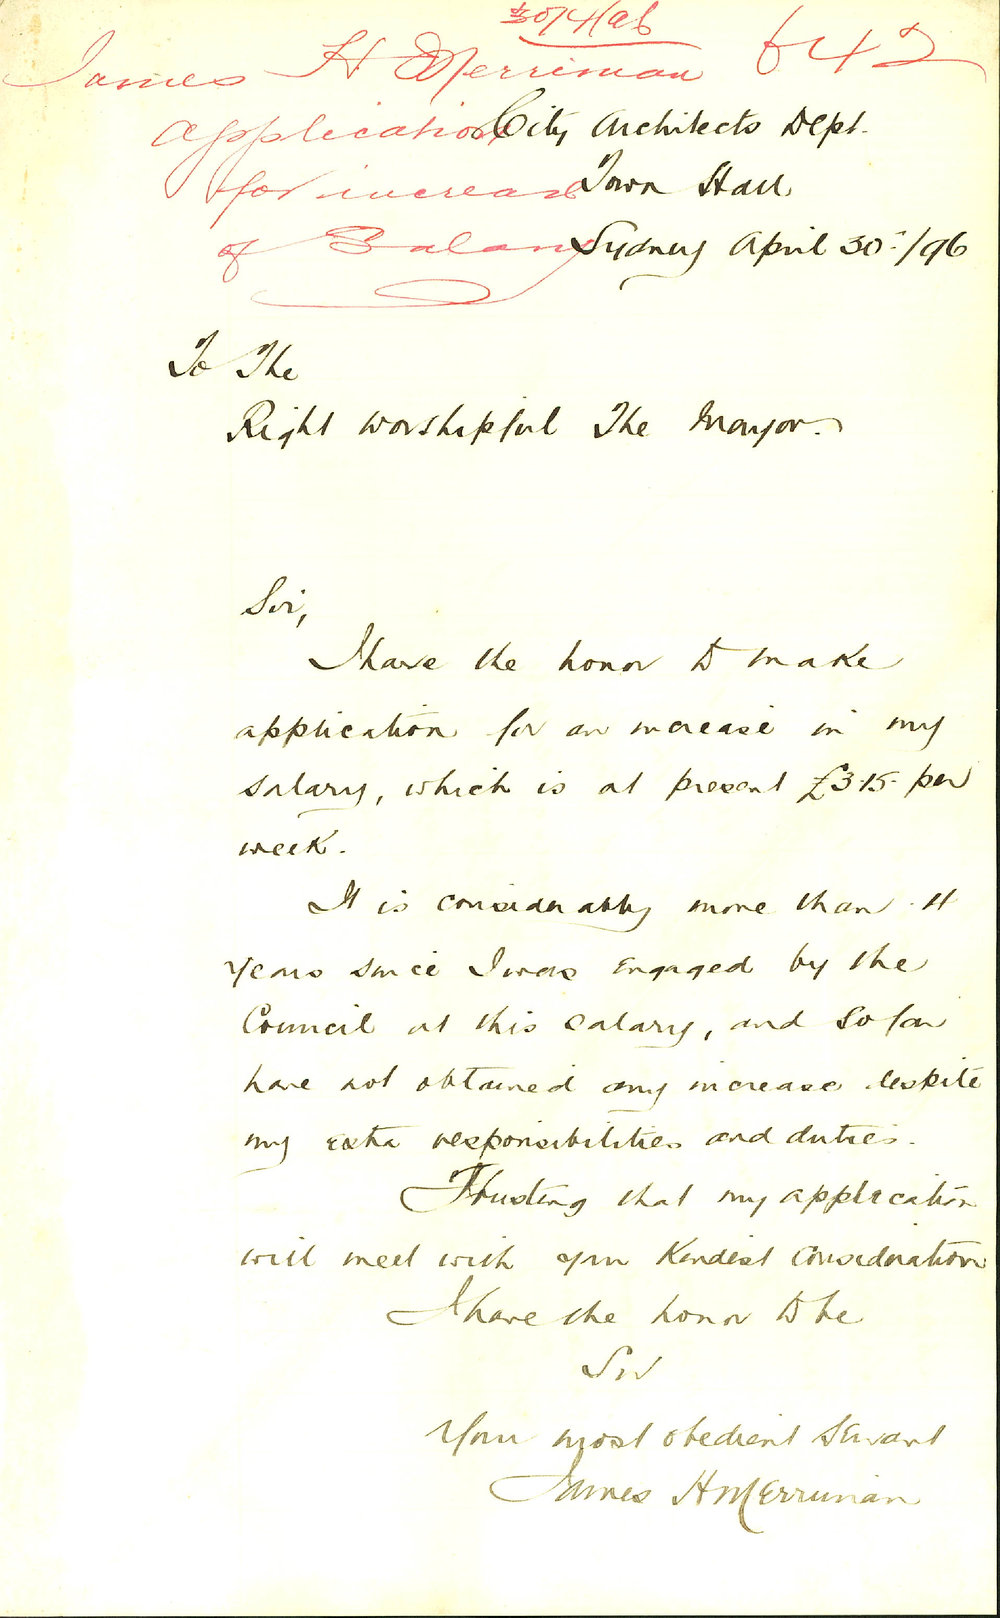 30/4/96
James H Merriman 642
Application
for increase
of Salary
City Architects Dept.
Town Hall
Sydney April 30th/96
To The
Right Worshipful The Mayor.
Sir,
I have the honor to make
application for an increase in my
salary, which is at present £3.15. per
week.
It is considerably more than 11
years since I was engaged by the
Council at this salary, and so far
have not obtained any increase despite
my extra responsibilities and duties.
Trusting that my application
will meet with your kindest consideration
I have the honor to be
Sir
Your most obedient servant
James H Merriman